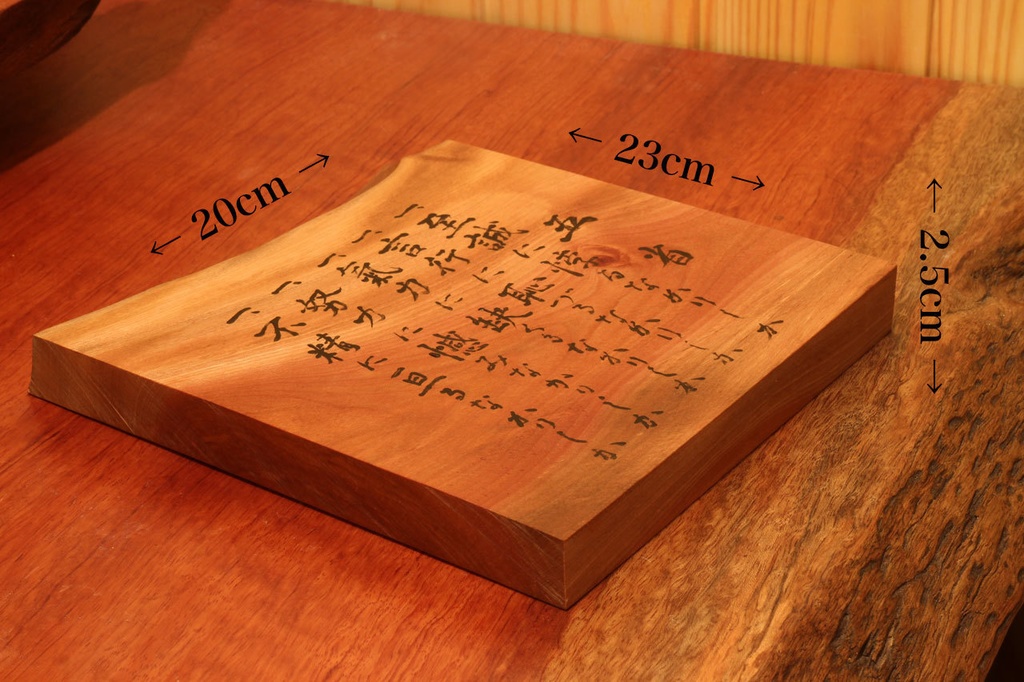 五省
一、至誠に悖るなかりしか
一、言行に恥づるなかりしか
一、氣力に缺くるなかりしか
一、努力に憾みなかりしか
一、不精に亘るなかりしか
20cm
23cm
2.5cm